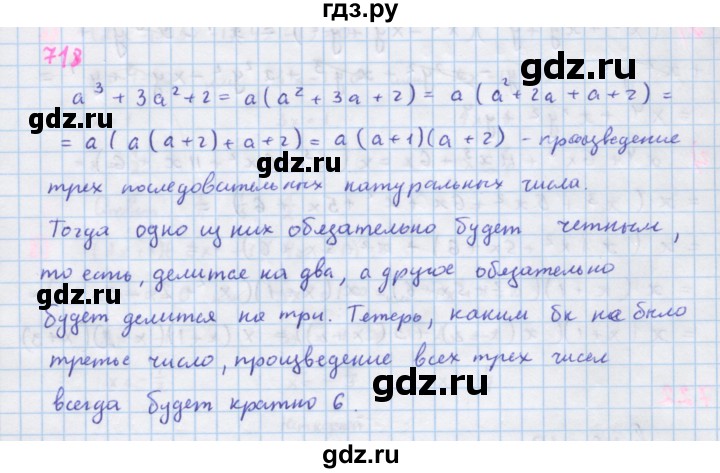 гдз.ру
718
a³ + 3a² + 2 = a(a² + 3a + 2) = a(a² + 2a + a + 2) =
= a(a(a+2) + a + 2) = a(a+1)(a+2) - произведение
трех последовательных натуральных числа.
Тогда одно из них обязательно будет четным,
то есть, делится на два, а другое обязательно
будет делится на три. Тетерь, каким бк на было
третье число, произведение всех трех чисел
всегда будет кратно 6.
gdz.ru
gdz.ru
gdz.ru
gdz.ru
gdz.ru
gdz.ru
gdz.ru